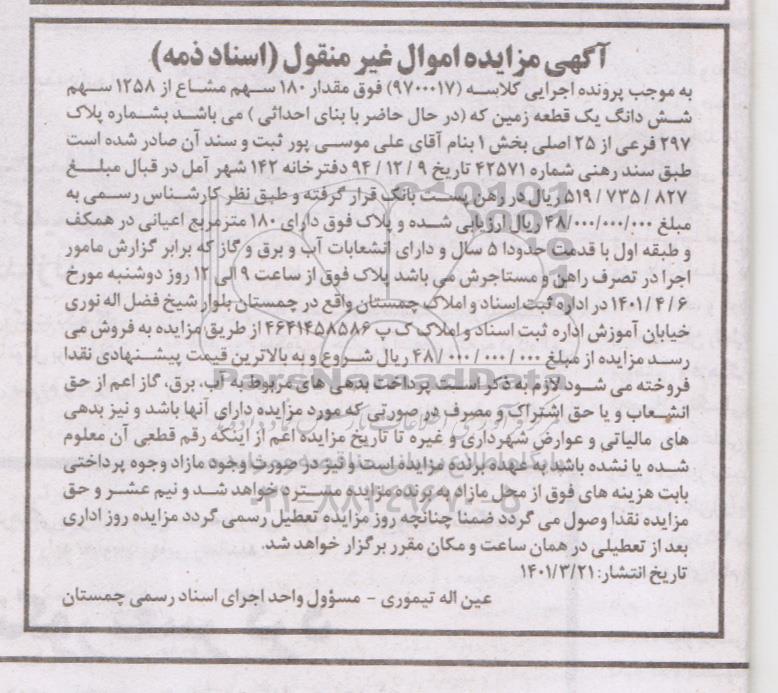 آگهی مزایده اموال غیر منقول (اسناد ذمه)
به موجب پرونده اجرایی کلاسه (۹۷۰۰۰۱۷) فوق مقدار ۱۸۰ سهم مشاع از ۱۲۵۸ سهم
شش دانگ یک قطعه زمین که (در حال حاضر با بنای احداثی ) می باشد بشماره پلاک
۲۹۷ فرعی از ۲۵ اصلی بخش ۱ بنام آقای علی موسی پور ثبت و سند آن صادر شده است
طبق سند رهنی شماره ۴۲۵۷۱ تاریخ ۹ / ۱۲ / ۹۴ دفترخانه ۱۴۲ شهر آمل در قبال مبلغ
۸۲۷ / ۷۳۵ / ۵۱۹ ریال در رهن پست بانک قرار گرفته و طبق نظر کارشناس رسمی به
مبلغ ۴۸/۰۰۰/۰۰۰/۰۰۰ ریال ارزیابی شده و پلاک فوق دارای ۱۸۰ مترمربع اعیانی در همکف
و طبقه اول با قدمت حدودا ۵ سال و دارای انشعابات آب و برق و گاز که برابر گزارش مامور
اجرا در تصرف راهن و مستاجرش می باشد پلاک فوق از ساعت ۹ الی ۱۲ روز دوشنبه مورخ
۶ / ۴ / ۱۴۰۱ در اداره ثبت اسناد و املاک چمستان واقع در چمستان بلوار شیخ فضل اله نوری
خیابان آموزش اداره ثبت اسناد و املاک ک پ ۴۶۴۱۴۵۸۵۸۶ از طریق مزایده به فروش می
رسد مزایده از مبلغ ۴۸/۰۰۰/۰۰۰/۰۰۰ ریال شروع و به بالاترین قیمت پیشنهادی نقدا
فروخته می شود. لازم به ذکر است پرداخت بدهی های مربوط به آب، برق، گاز اعم از حق
انشعاب و یا حق اشتراک و مصرف در صورتی که مورد مزایده دارای آنها باشد و نیز بدهی
های مالیاتی و عوارض شهرداری و غیره تا تاریخ مزایده اعم از اینکه رقم قطعی آن معلوم
شده یا نشده باشد به عهده برنده مزایده است و نیز در صورت وجود مازاد وجوه پرداختی
بابت هزینه های فوق از محل مازاد به برنده مزایده مسترد خواهد شد و نیم عشر و حق
مزایده نقدا وصول می گردد ضمنا چنانچه روز مزایده تعطیل رسمی گردد مزایده روز اداری
بعد از تعطیلی در همان ساعت و مکان مقرر برگزار خواهد شد.
تاریخ انتشار: ۱۴۰۱/۳/۲۱
عین اله تیموری - مسؤول واحد اجرای اسناد رسمی چمستان
ParsNamadData
۰۲۱-۸۸۳۴۹۶۷۰-۵